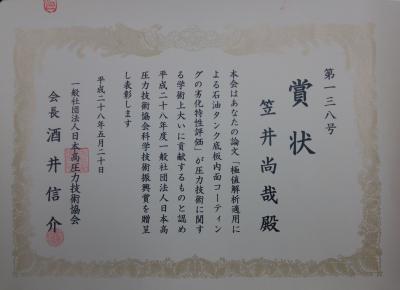 第一三八号
賞状
笠井尚哉殿
本会はあなたの論文「極値解析適用に
よる石油タンク底板内面コーティン
グの劣化特性評価」が圧力技術に関す
る学術上大いに貢献するものと認め
平成二十八年度一般社団法人日本高
圧力技術協会科学技術振興賞を贈呈
し表彰します
平成二十八年五月二十日
一般社団法人日本高圧力技術協会
会長 酒井信介